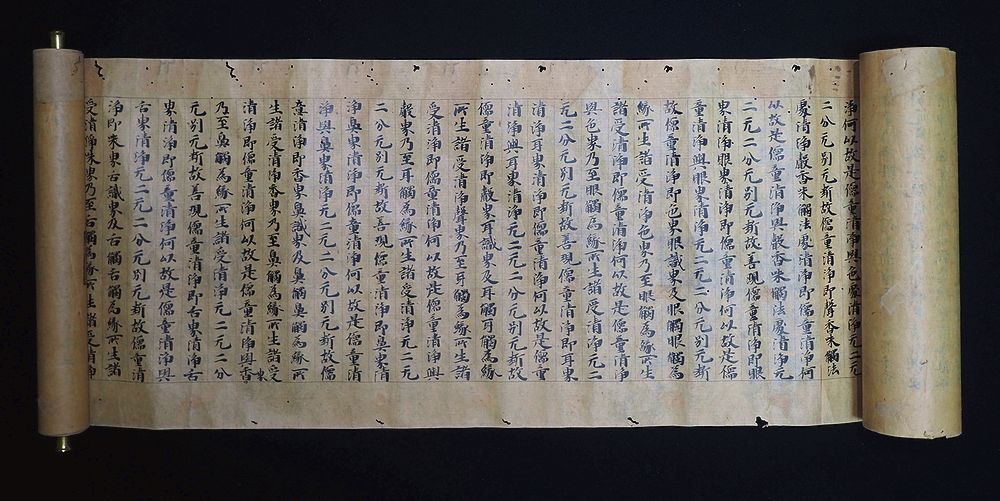 淨何以故是儒童清淨與色處清淨无二无
二分无別无斷故儒童清淨即聲香味觸法
處清淨聲香味觸法處清淨即儒童清淨何
以故是儒童清淨與聲香味觸法處清淨无
二无二分无別无斷故善現儒童清淨即眼
界清淨眼界清淨即儒童清淨何以故是儒
童清淨與眼界清淨无二无二分无別无斷
故儒童清淨即色界眼識界及眼觸眼觸為
緣所生諸受清淨色界乃至眼觸為緣所生
諸受清淨即儒童清淨何以故是儒童清淨
與色界乃至眼觸為緣所生諸受清淨无二
无二分无別无斷故善現儒童清淨即耳界
清淨耳界清淨即儒童清淨何以故是儒童
清淨與耳界清淨无二无二分无別无斷故
儒童清淨即聲界耳識界及耳觸耳觸為緣
所生諸受清淨聲界乃至耳觸為緣所生諸
受清淨即儒童清淨何以故是儒童清淨與
聲界乃至耳觸為緣所生諸受清淨无二无
二分无別无斷故善現儒童清淨即鼻界清
淨鼻界清淨即儒童清淨何以故是儒童清
淨與鼻界清淨无二无二分无別无斷故儒
童清淨即香界鼻識界及鼻觸鼻觸為緣所
生諸受清淨香界乃至鼻觸為緣所生諸受
清淨即儒童清淨何以故是儒童清淨與香界
乃至鼻觸為緣所生諸受清淨无二无二分
无別无斷故善現儒童清淨即舌界清淨舌
界清淨即儒童清淨何以故是儒童清淨與
舌界清淨无二无二分无別无斷故儒童清
淨即味界舌識界及舌觸舌觸為緣所生諸
受清淨味界乃至舌觸為緣所生諸受清淨